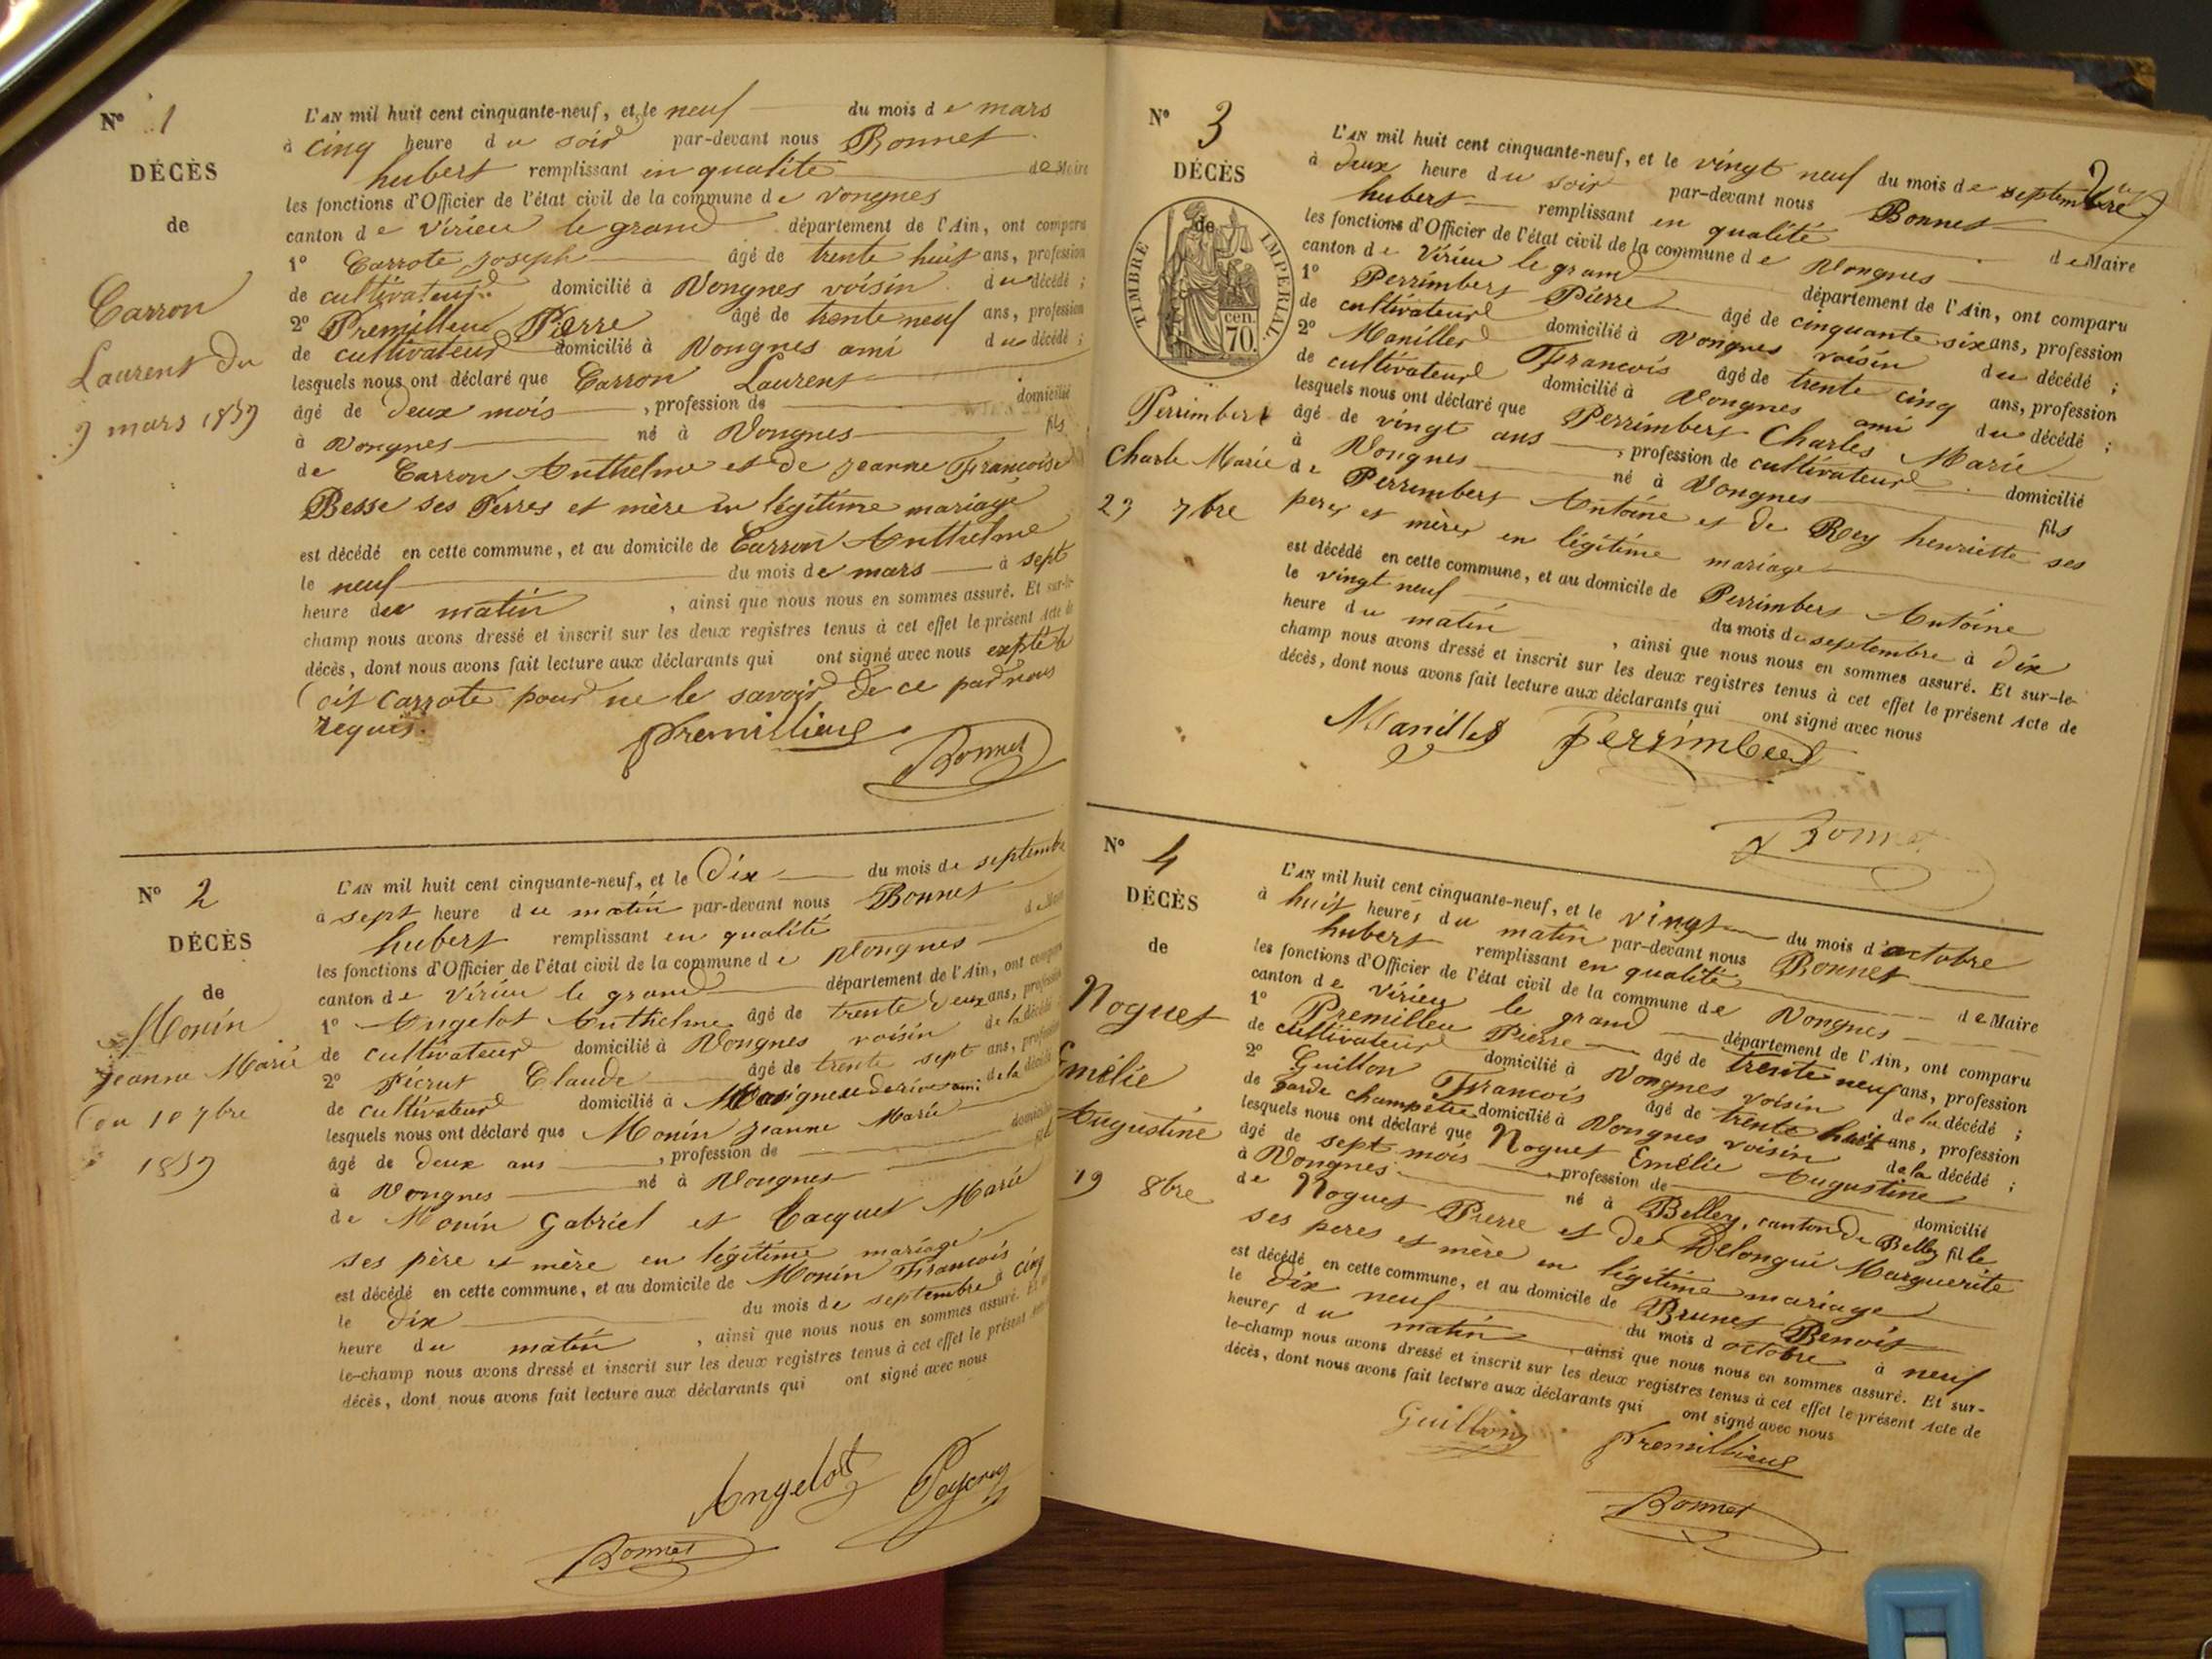 N° 1
DÉCÈS
de
Carron
Laurent du
9 mars 1859
L'AN mil huit cent cinquante-neuf, et le neuf du mois de mars
à cinq heure du soir par-devant nous Bonnet
hubert remplissant en qualité de Maire
les fonctions d'Officier de l'état civil de la commune de vongnes
canton de Virieu le grand département de l'Ain, ont comparu
1° Carrote joseph âgé de trente huit ans, profession
de cultivateur domicilié à Vongnes voisin du décédé ;
2° Premillieu Pierre âgé de trente neuf ans, profession
de cultivateur domicilié à Vongnes ami du décédé ;
lesquels nous ont déclaré que Carron Laurent
âgé de deux mois , profession de domicilié
à vongnes né à Vongnes fils
de Carron Anthelme et de jeanne Francoise
Besse ses Perres et mère en légitime mariage
est décédé en cette commune, et au domicile de Carron Anthelme
le neuf du mois de mars à sept
heure du matin , ainsi que nous nous en sommes assuré. Et sur-le-
champ nous avons dressé et inscrit sur les deux registres tenus à cet effet le présent Acte de
décès, dont nous avons fait lecture aux déclarants qui ont signé avec nous
cit Carrote pour ne le savoir de ce par nous
requis.
Premillieux
Bonnet
N° 2
DÉCÈS
de
Monin
jeanne Marie
du 10 7bre
1859
L'AN mil huit cent cinquante-neuf, et le Dix du mois de septembre
à sept heure du matin par-devant nous Bonnet
hubert remplissant en qualité de Maire
les fonctions d'Officier de l'état civil de la commune de Vongnes
canton de Virieu le grand département de l'Ain, ont comparu
1° Angelot Anthelme âgé de trente deux ans, profession
de cultivateur domicilié à Vongnes voisin de la décédé
2° Claude âgé de trente sept ans, profession
de cultivateur domicilié à ami de la décédé
lesquels nous ont déclaré que Monin jeanne Marie
âgé de deux ans , profession de domicilié
à Vongnes né à Vongnes
de Monin Gabriel et Cacquet Marie
ses père et mère en légitime mariage
est décédé en cette commune, et au domicile de Monin Francois
le dix du mois de septembre à cinq
heure du matin , ainsi que nous nous en sommes assuré. Et sur-
le-champ nous avons dressé et inscrit sur les deux registres tenus à cet effet le présent
décès, dont nous avons fait lecture aux déclarants qui ont signé avec nous
Angelot
Bonnet
N° 3
DÉCÈS
de
TIMBRE IMPÉRIAL.
cen
70.
Perrimbert
Charle Marie
29 7bre
L'AN mil huit cent cinquante-neuf, et le vingt neuf du mois de septembre
à deux heure du soir par-devant nous Bonnet
hubert remplissant en qualité de Maire
les fonctions d'Officier de l'état civil de la commune de Vongnes
canton de Virieu le grand département de l'Ain, ont comparu
1° Perrimbert Pierre âgé de cinquante six ans, profession
de cultivateur domicilié à Vongnes voisin du décédé ;
2° Maniller Francois âgé de trente cinq ans, profession
de cultivateur domicilié à Vongnes ami du décédé ;
lesquels nous ont déclaré que Perrimbert Charles Marie
âgé de vingt ans , profession de cultivateur domicilié
à Vongnes né à Vongnes fils
de Perrimbert Antoine et de Rey henriette ses
peres et mères en légitime mariage
est décédé en cette commune, et au domicile de Perrimbert Antoine
le vingt neuf du mois de septembre à dix
heure du matin , ainsi que nous nous en sommes assuré. Et sur-le-
champ nous avons dressé et inscrit sur les deux registres tenus à cet effet le présent Acte de
décès, dont nous avons fait lecture aux déclarants qui ont signé avec nous
Maniller Perrimbert
Bonnet
N° 4
DÉCÈS
de
Noguet
Emélie
Augustine
19 8bre
L'AN mil huit cent cinquante-neuf, et le vingt du mois d'octobre
à huit heures du matin par-devant nous Bonnet
hubert remplissant en qualité de Maire
les fonctions d'Officier de l'état civil de la commune de Vongnes
canton de Virieu le grand département de l'Ain, ont comparu
1° Premilleu Pierre âgé de trente neuf ans, profession
de cultivateur domicilié à Vongnes voisin de la décédé ;
2° Guillon Francois âgé de trente huit ans, profession
de garde champetre domicilié à Vongnes voisin de la décédé ;
lesquels nous ont déclaré que Noguet Emélie Augustine
âgé de sept mois , profession de domicilié
à Vongnes né à Belley, canton de Belley fille
de Noguet Pierre et de Delongui Marguerite
ses peres et mère en légitime mariage
est décédé en cette commune, et au domicile de Brunet Benoit
le dix neuf du mois d octobre à neuf
heures du matin , ainsi que nous nous en sommes assuré. Et sur-
le-champ nous avons dressé et inscrit sur les deux registres tenus à cet effet le présent Acte de
décès, dont nous avons fait lecture aux déclarants qui ont signé avec nous
Guillon Premillieux
Bonnet